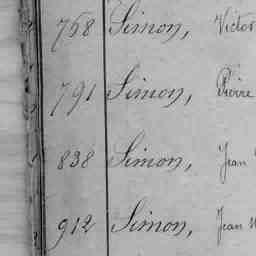 768 Simon, Victor
791 Simon, Pierre
838 Simon, Jean
912 Simon, Jean